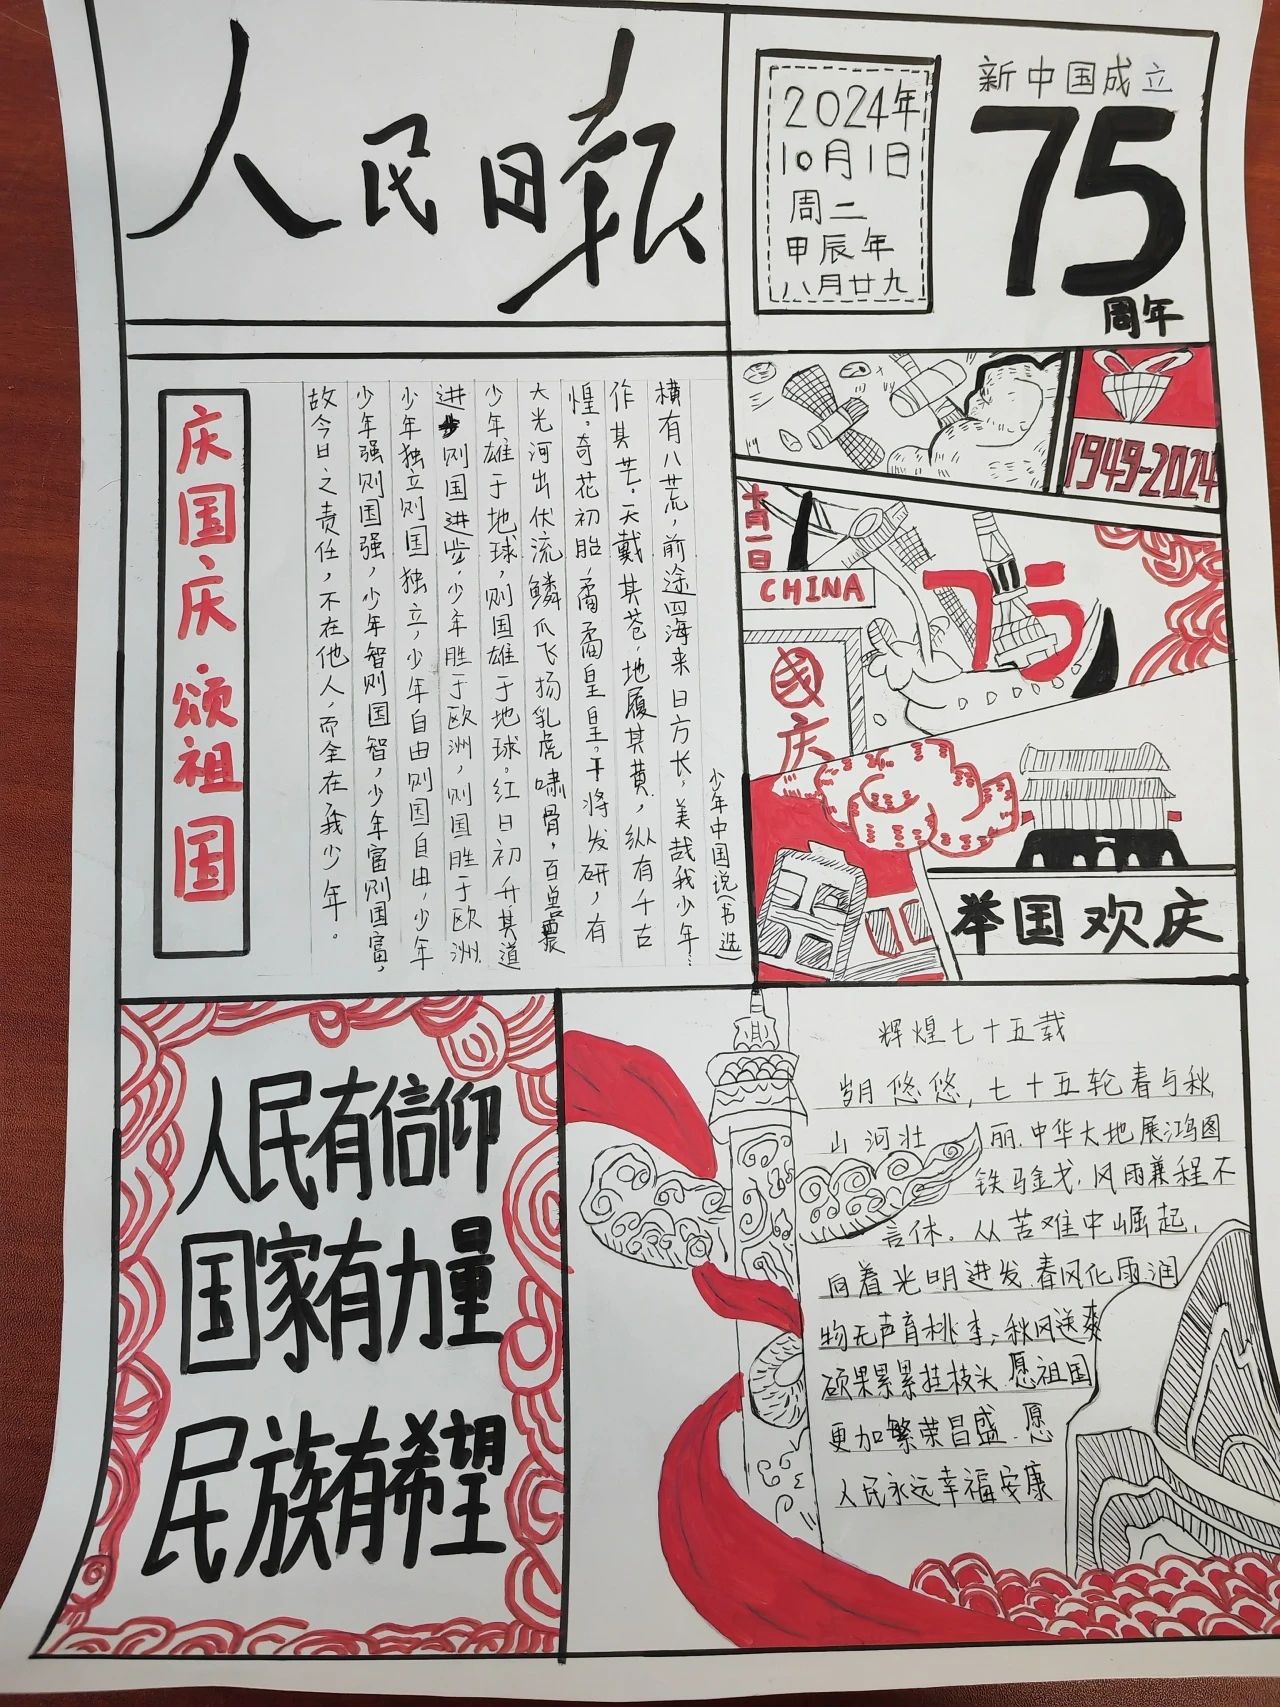 人民日报
2024年
10月1日
周二
甲辰年
八月廿九
新中国成立
75
周年
庆国庆 颂祖国
故今日之责任，不在他人，而全在我少年。
少年强则国强，少年智则国智，少年富则国富，
少年独立则国独立，少年自由则国自由，少年
进步则国进步，少年胜于欧洲，则国胜于欧洲.
少年雄于地球，则国雄于地球。红日初升其道
大光河出伏流鳞爪飞扬乳虎啸骨，百兽震
惶。奇花初胎，矞矞皇皇，干将发研，有
作其芒。天戴其苍，地履其黄，纵有千古
横有八荒，前途四海来日方长，美哉我少年…
少年中国说(书选)
1949-2024
十月一日
CHINA
75
國庆
举国欢庆
人民有信仰
国家有力量
民族有希望
辉煌七十五载
岁月悠悠，七十五轮春与秋
山河壮丽.中华大地展鸿图
铁马金戈.风雨兼程不
言休。从苦难中崛起，
向着光明进发.春风化雨润
物无声育桃李；秋风送爽
硕果累累挂枝头.愿祖国
更加繁荣昌盛.愿
人民永远幸福安康